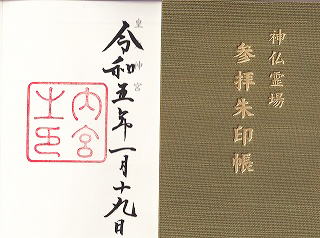 神仏霊場
参拝朱印帳
皇大神宮
令和五年一月十九日
内宮
之印